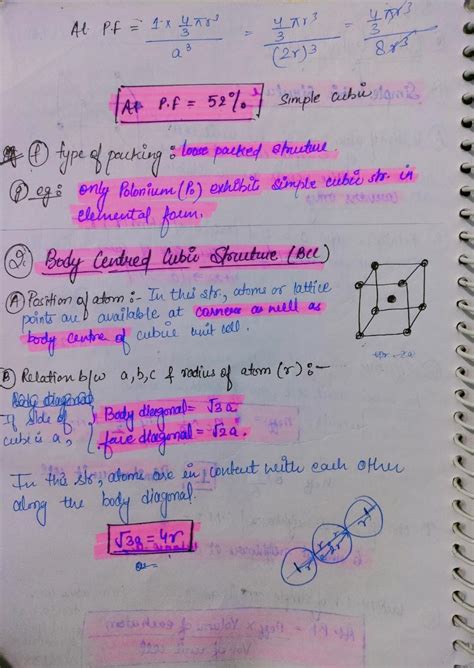 At P.f = 1 × 4/3 πr³ / a³ = 4/3 πr³ / (2r)³ = 4/3 πr³ / 8r³
At P.f = 52% Simple Cubic
(f) type of packing : loose packed structure
(g) eg : only Polonium (Po) exhibits simple cubic str. in
elemental form.
2. Body Centred Cubic Structure (BCC)
(A) Position of atom :- In this str., atoms or lattice
points are available at corners as well as
body centre of cubic unit cell.
(B) Relation b/w a, b, c & radius of atom (r) :-
Body diagonal
If side of
cub is a,
Body diagonal = √3a
face diagonal = √2a
In this str, atoms are in contact with each other
along the body diagonal.
√3a = 4r
r
2r
r